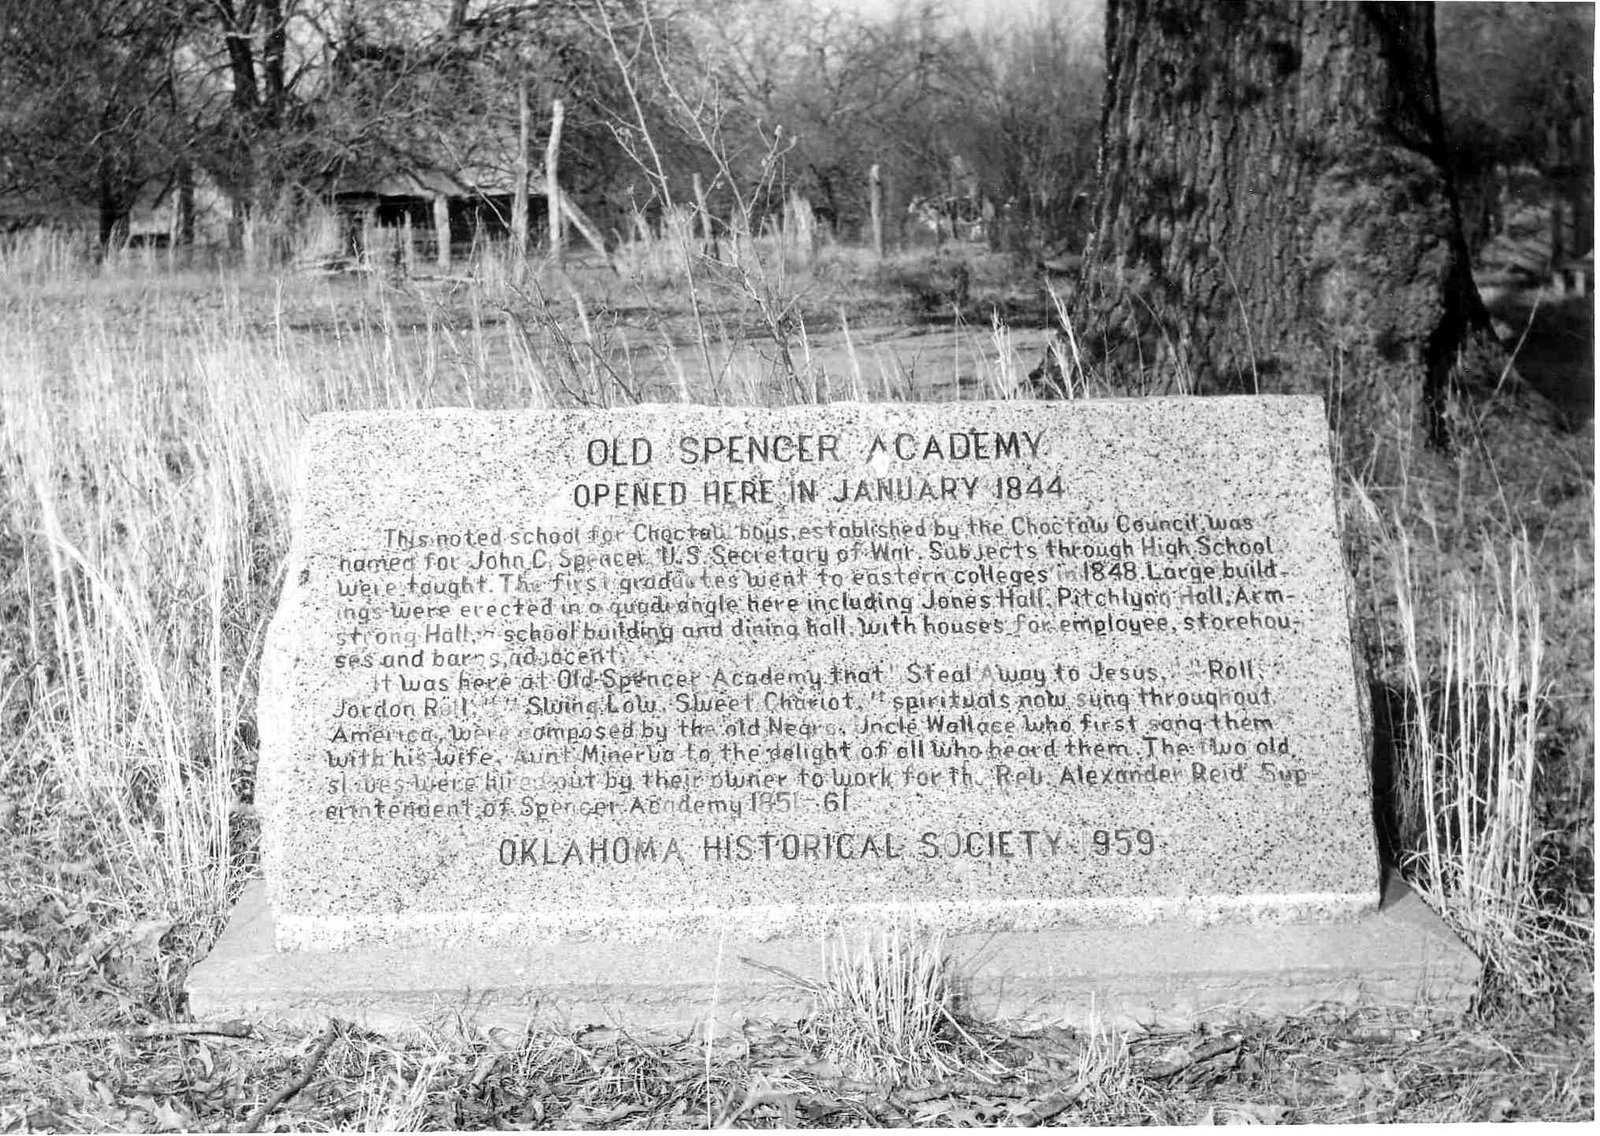 OLD SPENCER ACADEMY
OPENED HERE IN JANUARY 1844
This noted school for Choctaw boys, established by the Choctaw Council, was
named for John C. Spencer, U.S. Secretary of War. Subjects through High School
were taught. The first graduates went to eastern colleges in 1848. Large build-
ings were erected in a quadrangle here including Jones Hall, Pitchlynn Hall, Arm-
strong Hall, school building and dining hall, with houses for employee, storehou-
ses and barns adjacent.
It was here at Old Spencer Academy that "Steal Away to Jesus," "Roll,
Jordon Roll," "Swing Low, Sweet Chariot," spirituals now sung throughout
America, were composed by the old Negro, Uncle Wallace who first sang them
with his wife, Aunt Minerva to the delight of all who heard them. The two old
slaves were hired out by their owner to work for the Rev. Alexander Reid Sup-
erintendent of Spencer Academy 1851-61.
OKLAHOMA HISTORICAL SOCIETY 959